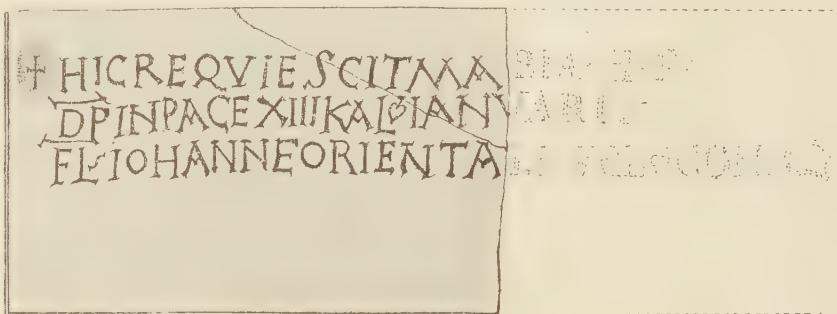 + HICREQVIESCITMARIA · H · F ·
DP INPACE XIIII KAL IANVARI
FL IOHANNEORIENTALI